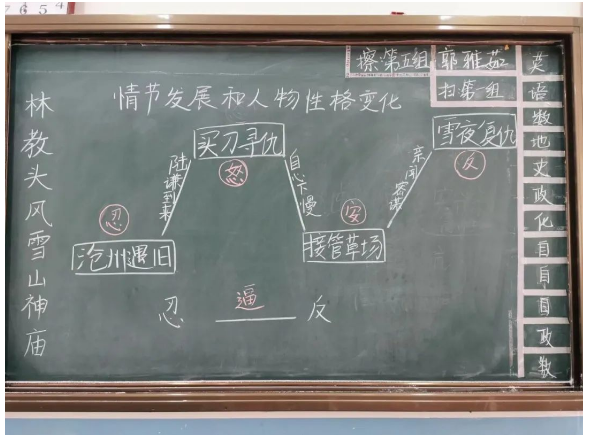 7 6 5 4
擦第五组 郭雅茹
扫第一组
情节发展和人物性格变化
林教头风雪山神庙
买刀寻仇
怒
雪夜复仇
反
陆谦到来
自心下慢
亲闻密谋
忍
沧州遇旧
安
接管草场
忍 逼 反
英
语
物
地
史
政
化
自
自
自
政
数